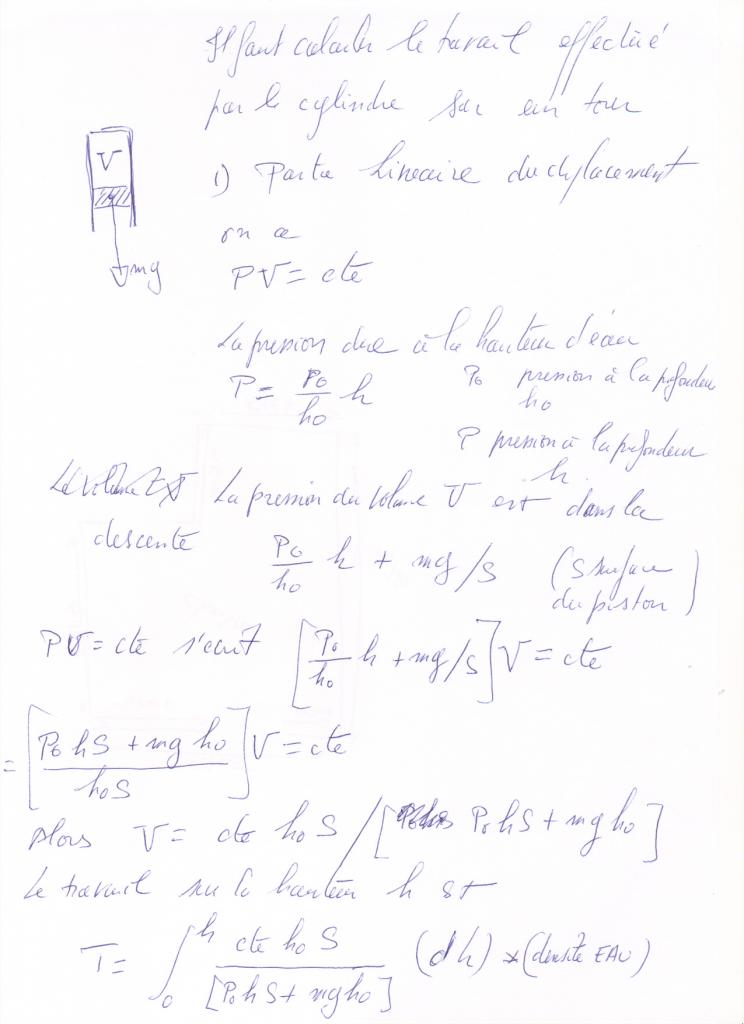 Il faut calculer le travail effectué
par le cylindre sur un tour
V
1) Partie Lineaire du deplacement
on a
mg
PV = cte
La pression due à la hauteur d'eau
P = P0/h0 h
P0 pression à la profondeur h0
P pression à la profondeur h
La pression du volume V est dans la
descente P0/h0 h + mg/S (S surface du piston)
PV = cte s'écrit [P0/h0 h + mg/S] V = cte
= [P0 h S + mg h0 / h0 S] V = cte
Alors V = cte h0 S / [P0 h S + mg h0]
Le travail sur la hauteur h est
T = ∫0^h cte h0 S / [P0 h S + mg h0] (dh) × (densité EAU)